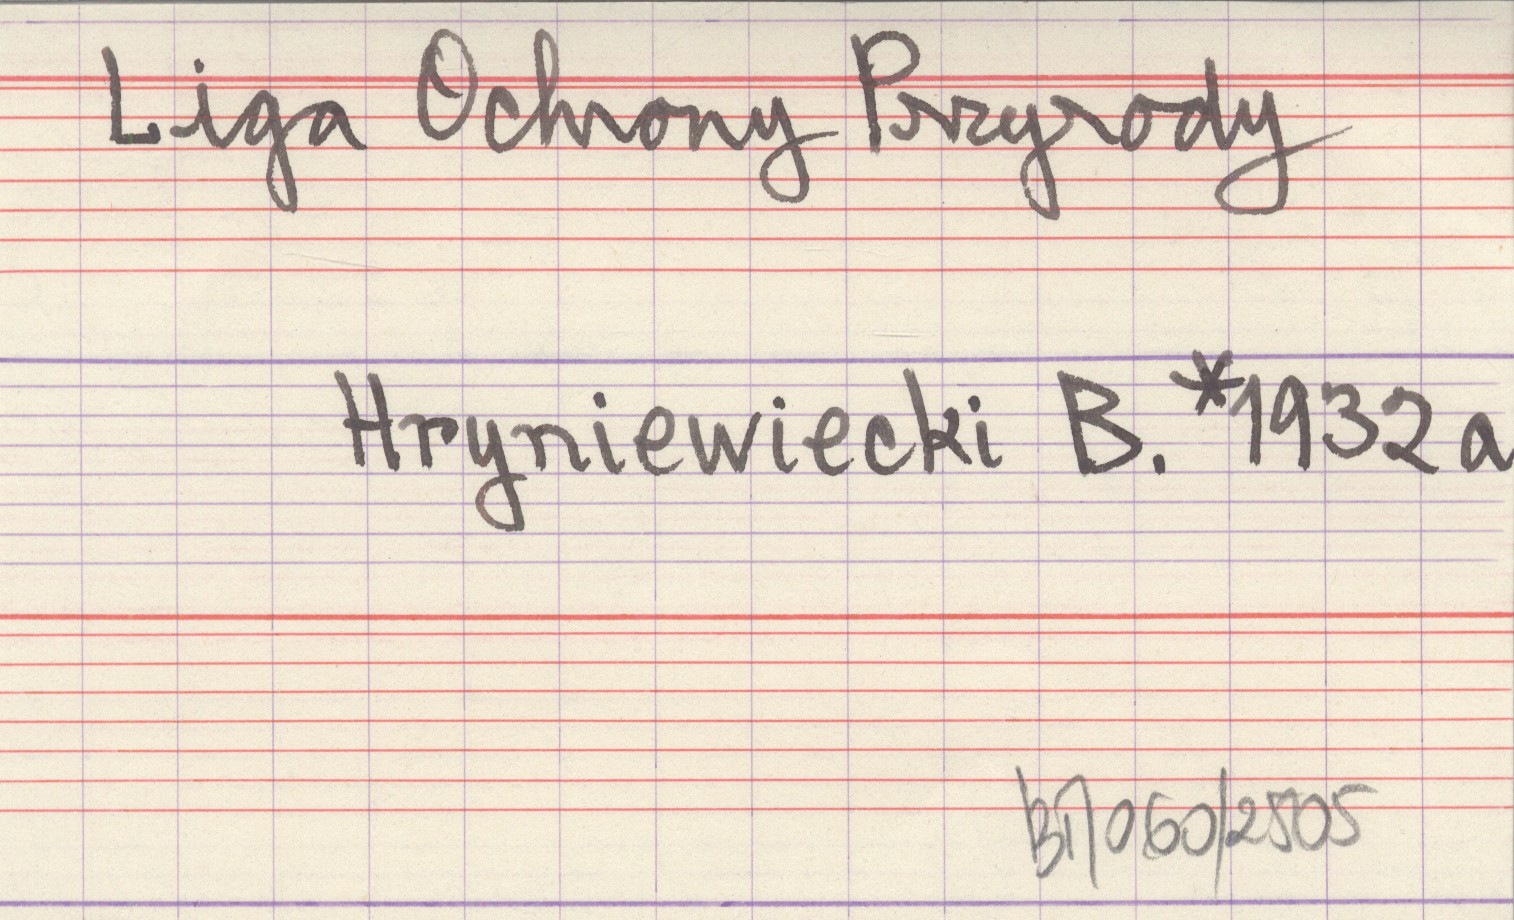 Liga Ochrony Przyrody
Hryniewiecki B. *1932a
BT/060/2505